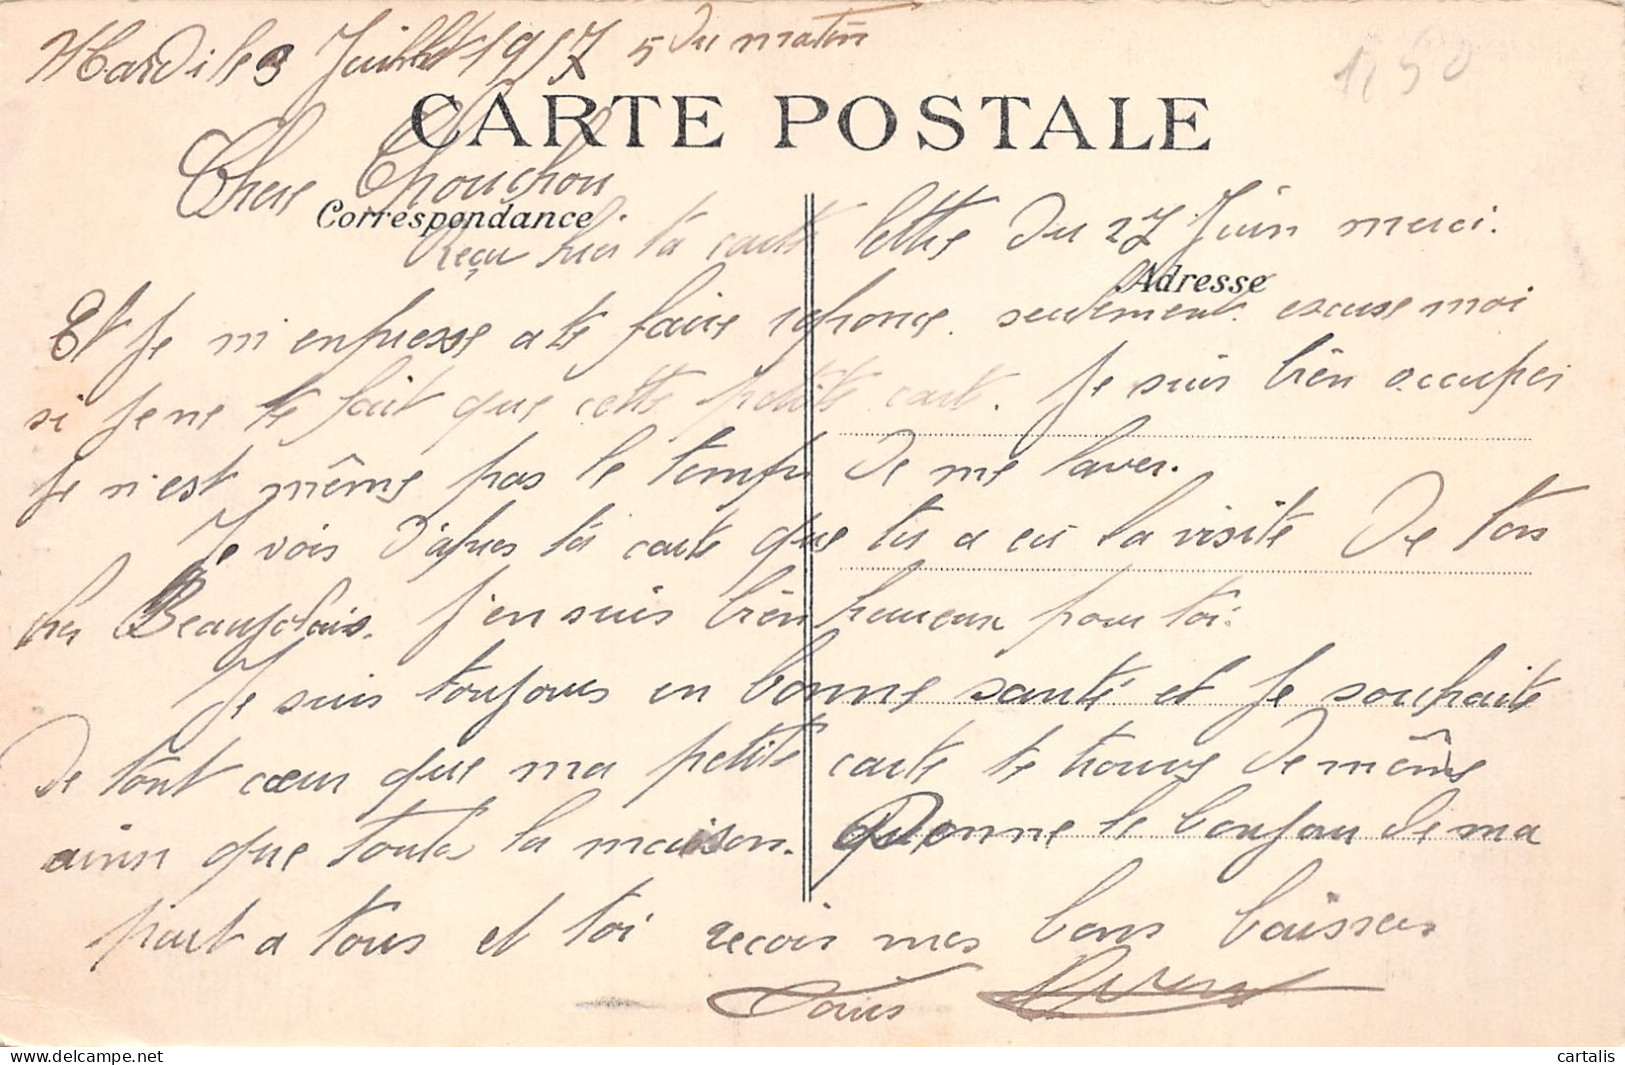 Mardi le 3 Juillet 1917 5 du matin
1,50
CARTE POSTALE
Chere Chouchou
Correspondance
Reçu hier ta carte lettre du 27 Juin merci.
Adresse
Et Je m'enpresse a te faire reponce. seulement excuse moi
si je ne te fait que cette petite carte. Je suis bien occuper
je n'est même pas le temps de me laver.
Je vois d'apres ta carte que tu a eu la visite de ton
Beaujolais. J'en suis bien heureux pour toi.
Je suis toujours en bonne santé et Je souhaite
de tout cœur que ma petite carte te trouve de même
ainsi que toute la maison. Donne le bonjour de ma
part a tous et toi reçois mes bons baisers
delcampe.net
cartalis